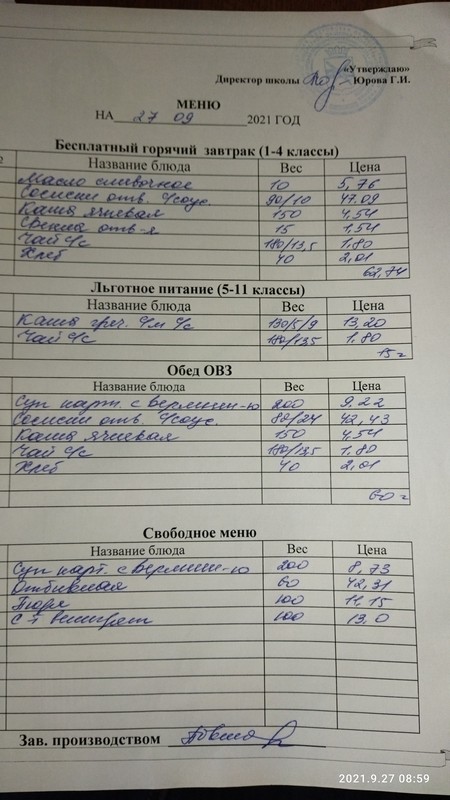 «Утверждаю»
Директор школы Юрова Г.И.
МЕНЮ
НА 27 09 2021 ГОД
Бесплатный горячий завтрак (1-4 классы)
Название блюда Вес Цена
Масло сливочное 10 5,76
Сосиски отв. с/соус. 90/10 47.09
Каша ячневая 150 4,54
Свекла отв-я 15 1,54
Чай с/с 180/13,5 1,80
Хлеб 40 2,01
62,74
Льготное питание (5-11 классы)
Название блюда Вес Цена
Каша греч. с/м с/с 130/5/9 13,20
Чай с/с 180/13,5 1,80
15=
Обед ОВЗ
Название блюда Вес Цена
Суп карт. с вермиш-ю 200 9,22
Сосиски отв. с/соус. 80/24 42,43
Каша ячневая 150 4,54
Чай с/с 180/13,5 1,80
Хлеб 40 2,01
60=
Свободное меню
Название блюда Вес Цена
Суп карт. с вермиш-ю 200 8,73
Отбивная 60 42,31
Пюре 100 11,15
С-т винигрет 100 13,0
Зав. производством
2021.9.27 08:59